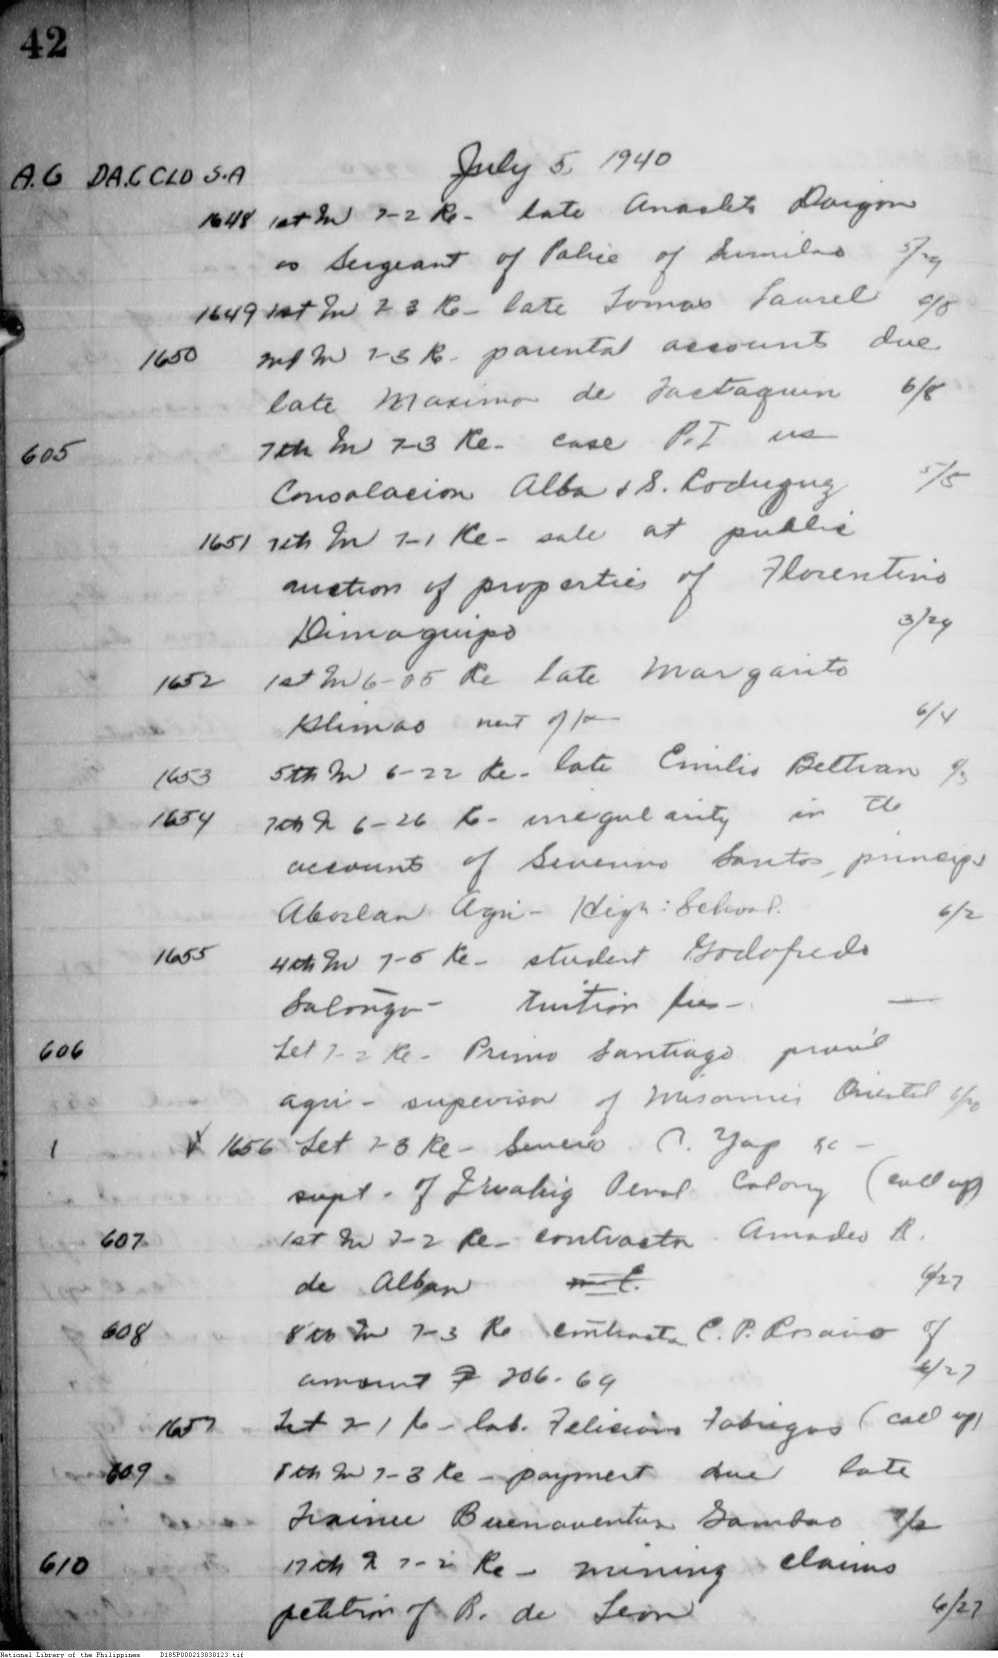 42
July 5, 1940
A.G DA.G CLD S.A
1648 1st In 7-2 Re- late Anacleto Daigon
as Sergeant of Police of Sumilao 5/29
1649 1st In 7-3 Re- late Tomas Laurel 6/8
1650 2nd In 7-3 Re- parental accounts due
late Maximo de 6/8
605 7th In 7-3 Re- case P.I vs
Consolacion Alba & S. Rodriguez 5/5
1651 7th In 7-1 Re- sale at public
auction of properties of Florentino
Dimaguipo 3/29
1652 1st In 6-05 Re late Margarito
Alimao next of 6/4
1653 5th In 6-22 Re- late Emilio Beltran
1654 7th In 6-26 Re- irregularity in the
accounts of Severino Santos,
Aborlan Agri- High School. 6/2
1655 4th In 7-5 Re- student Godofredo
Salonga- tuition fees-
606 Let 7-2 Re- Primo Santiago prov'l
agri- supervisor of Misamis Oriental 6/20
1 1656 Let 7-3 Re- Severo P. Yap &c -
supt. of Iwahig Penal Colony (call up)
607 1st In 7-2 Re- contractor Amadeo R.
de Alban 6/27
608 8th In 7-3 Re contractor C. P. Rosario of
amount ₱ 206.69 6/27
1657 Let 7-1 Re- lab. Feliciano Fabregas (call up)
609 8th In 7-3 Re- payment due late
Trainee Buenaventura Gambao 7/2
610 17th In 7-2 Re- mining claims
petition of R. de Leon 6/27
National Library of the Philippines D185P000213838123.tif